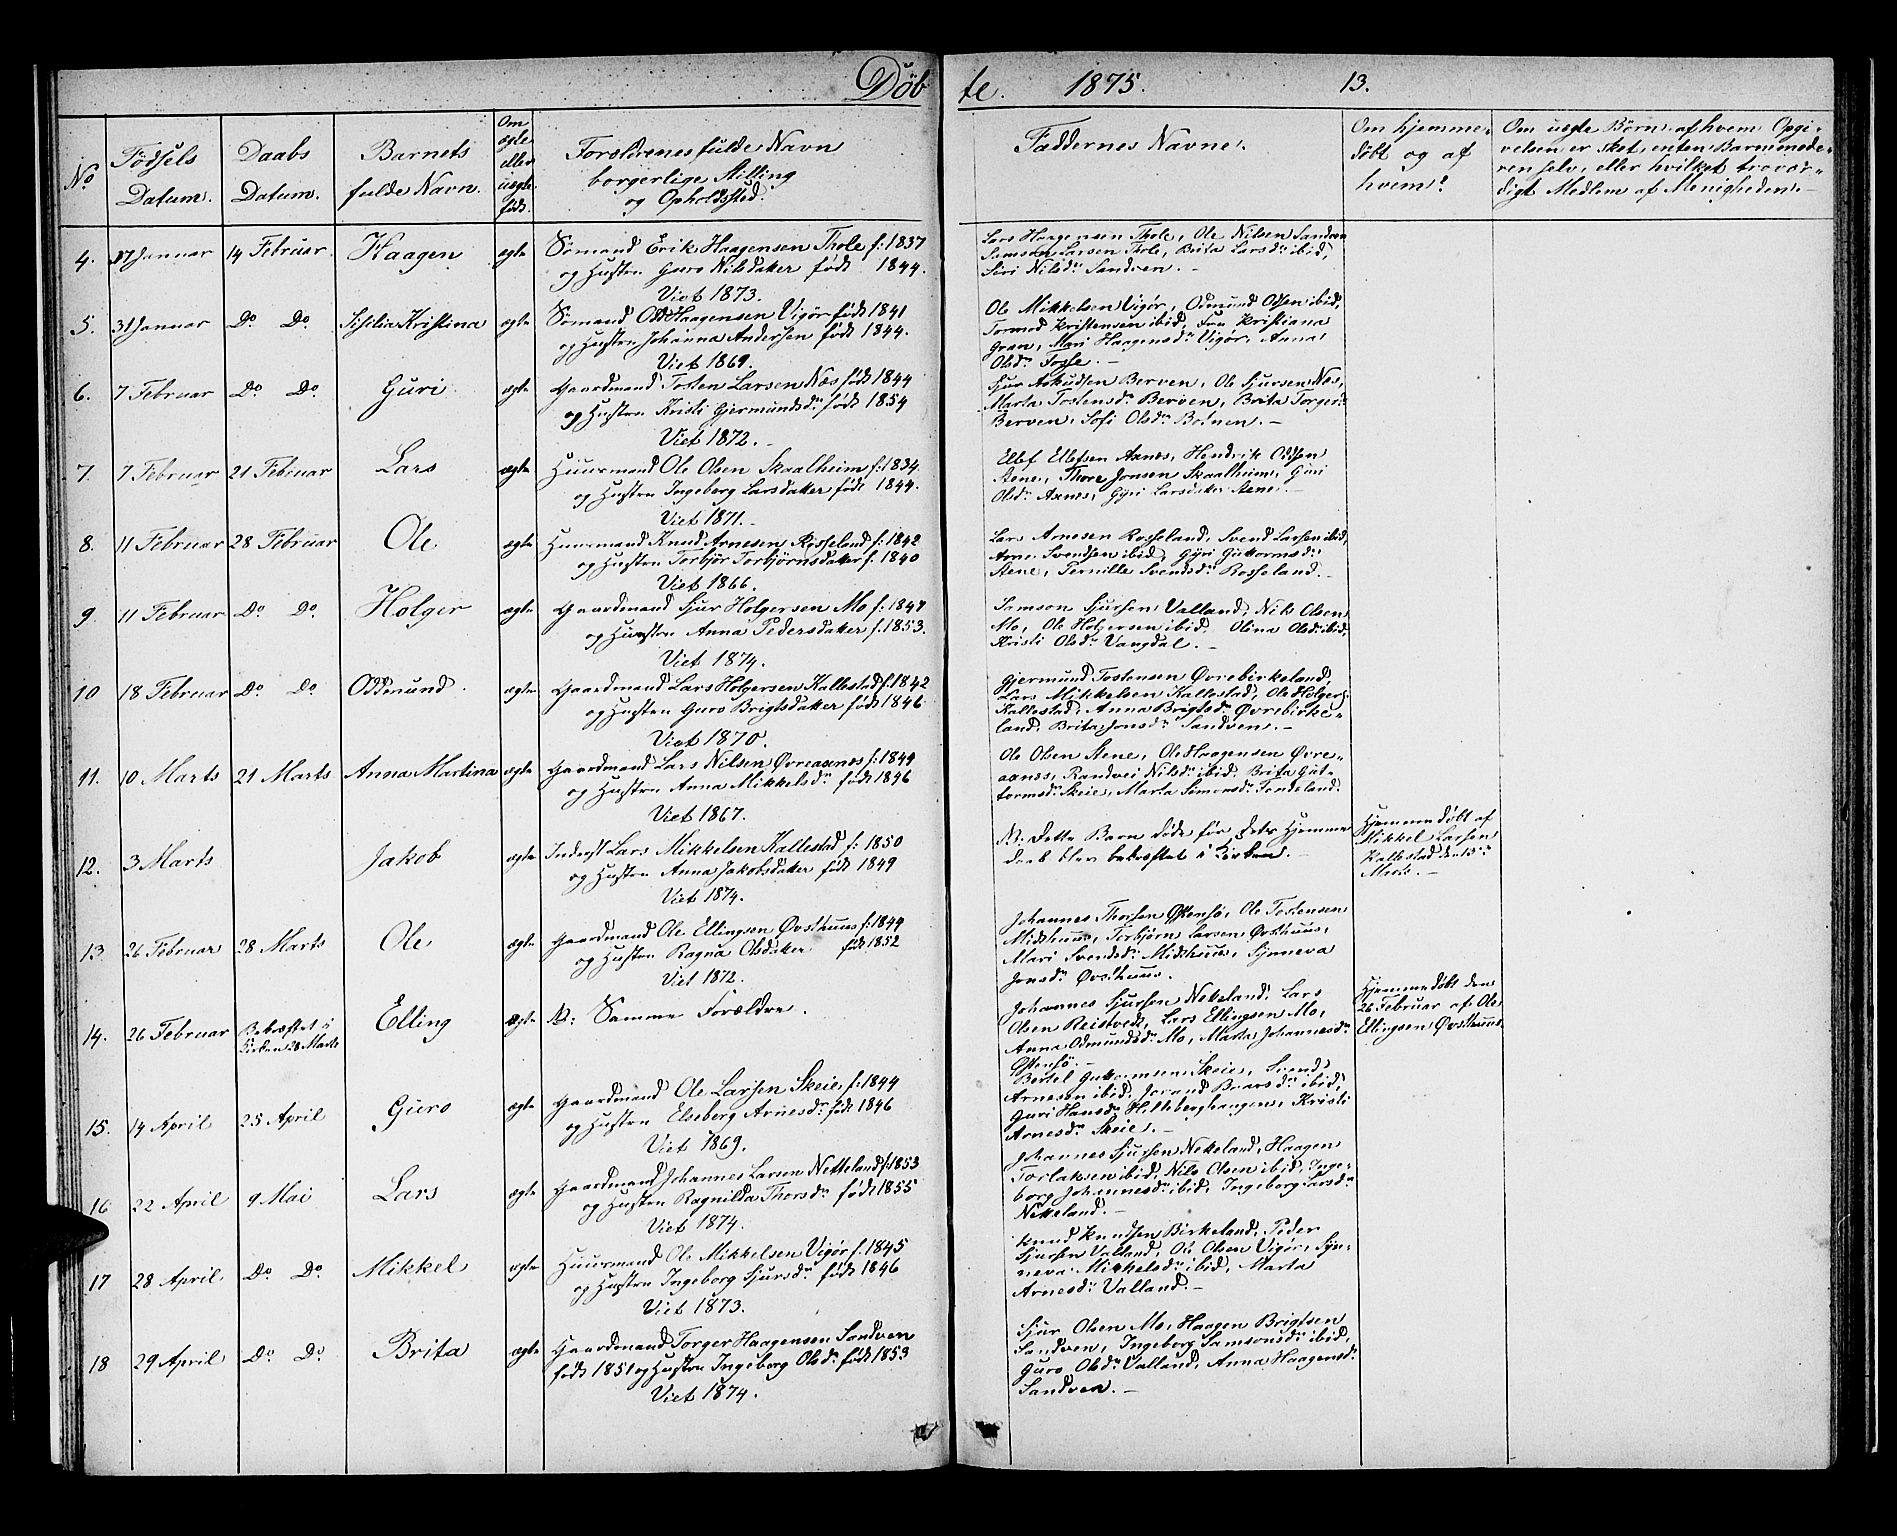 Døbte. 1875. 13.
No
Fødsels Datum.
Daabs Datum.
Barnets fulde Navn.
Om ægte eller uægte født.
Forældrenes fulde Navn borgerlige Stilling og Opholdssted.
Faddernes Navne.
Om hjemmedøbt og af hvem?
Om uægte Børn, af hvem Opgivelsen er sket, enten Barnmoderen selv, eller hvilket troværdigt Medlem af Menigheden.
4. 27 Januar 14 Februar Haagen ægte Sømand Erik Haagensen Thole f: 1837
og Hustru Guro Nilsdatter født 1844.
Viet 1873.
Lars Haagensen Thole, Ole Nilsen Sandven
Samson Larsen Thole, Brita Larsdr ibid,
Siri Nilsdr Sandven. -
5. 31 Januar Do Do Sisilia Kristina ægte Sømand Odd Haagensen Vigør født 1841
og Hustru Johanna Andersen født 1844.
Viet 1869.
Ole Mikkelsen Vigør, Odmund Odsen ibid,
Tormod Kristensen ibid, Fru Kristiana
Gran, Mari Haagensdr Vigør, Anna
Olsdr Fosse. -
6. 7 Februar Do Do Guri ægte Gaardmand Tosten Larsen Næs født 1844
og Hustru Kristi Germundsdr født 1854
Viet 1872. -
Sjur Berven, Ole Sjursen Næs,
Marta Tostensdr Berven, Brita Torgersdr
Berven, Sofi Olsdr -
7. 7 Februar 21 Februar Lars ægte Huusmand Ole Olsen Skaalheim f: 1834
og Hustru Ingeborg Larsdatter født 1844.
Viet 1871. -
Ellef Ellefsen Axnes, Hendrik Odsen
Stene, Thore Jonsen Skaalheim, Guri
Olsdr Axnes, Gyri Larsdatter Stene. -
8. 11 Februar 28 Februar Ole ægte Huusmand Knud Arnesen Rosseland f: 1842
og Hustru Torbjør Torbjørnsdatter f. 1840
Viet 1866.
Lars Arnesen Rosseland, Svend Larsen ibid,
Arne Svendsen ibid, Gyri Guttormsdr
Stene, Pernille Svendsdr Rosseland. -
9. 11 Februar Do Do Holger ægte Gaardmand Sjur Holgersen Mo f: 1847
og Hustru Anna Pedersdatter f. 1853.
Viet 1874.
Samson Sjursen Valland, Nils Olsen
Mo, Ole Holgersen ibid, Olina Olsdr ibid,
Kristi Olsdr Vangdal. -
10 18 Februar Do Do Oddmund. ægte Gaardmand Lars Holgersen Kallestad f. 1842
og Hustru Guro Brigtsdatter født 1846
Viet 1870.
Gjermund Tostensen Øvrebirkeland,
Lars Mikkelsen Kallestad, Ole Holgers.
Kallestad, Anna Brigtsdr Øvrebirke-
land, Brita Jonsdr Sandven. -
11. 10 Marts 21 Marts Anna Martina ægte Gaardmand Lars Nilsen Øvreaxnes f: 1844
og Hustru Anna Mikkelsdr født 1846
Viet 1867.
Ole Olsen Stene, Ole Haagensen Øvre-
axnes, Randvei Nilsdr ibid, Brita Gut-
tormsdr Skeie, Marta Simonsdr Tondeland.
12. 3 Marts Jakob ægte Inderst Lars Mikkelsen Kallestad f: 1850
og Hustru Anna Jakobsdatter født 1849
Viet 1874.
NB: Dette Barn døde før dets Hjemme
daab blev bekræftet i Kirken. -
Hjemmedøbt af
Mikkel Larsen
Kallestad den 13de
Marts. -
13. 26 Februar 28 Marts Ole ægte Gaardmand Ole Ellingsen Øvsthuus f: 1844
og Hustru Ragna Olsdatter født 1852
Viet 1872.
Johannes Thorsen Østensø, Ole Tostensen
Midthuus, Torbjørn Larsen Øvsthuus,
Mari Svendsdr Midthuus, Synneva
Jonsdr Øvsthuus.
14. 26 Februar Bekræftet i Kirken 28 Marts Elling ægte NB: Samme Forældre.
Johannes Sjursen Netteland, Lars
Olsen Reistvedt, Lars Ellingsen Mo,
Anna Odmundsdr Mo, Marta Johannesdr
Østensø. -
Hjemmedøbt den
26 Februar af Ole
Ellingsen Øvsthuus.
15. 14 April 25 April Guro ægte Gaardmand Ole Larsen Skeie, f: 1844
og Hustru Elseberg Arnesdr født 1846
Viet 1869.
Bertel Guttormsen Skeie, Svend
Arnesen ibid, Jorand Baarsdr ibid,
Guri Hansdr Hilleberghaugen, Kristi
Arnesdr Skeie. -
16 22 April 9 Mai Lars ægte Gaardmand Johannes Larsen Netteland f: 1853
og Hustru Ragnilda Thorsdr født 1855
Viet 1874.
Johannes Sjursen Netteland, Haagen
Torlaksen ibid, Nils Olsen ibid, Inge-
borg Johannesdr ibid, Ingeborg Larsdr
Netteland. -
17 28 April Do Do Mikkel ægte Huusmand Ole Mikkelsen Vigør f: 1845
og Hustru Ingeborg Sjursdr født 1846
Viet 1873.
Knud Knudsen Birkeland, Peder
Sjursen Valland, Ole Olsen Vigør, Syn-
neva Mikkelsdr ibid, Marta
Arnesdr Valland. -
18 29 April Do Do Brita ægte Gaardmand Torger Haagensen Sandven
født 1851 og Hustru Ingeborg Olsdr født 1853
Viet 1874.
Sjur Olsen Mo, Haagen Brigtsen
Sandven, Ingeborg Samsonsdr ibid,
Guro Olsdr Valland, Anna Haagensdr
Sandven. -